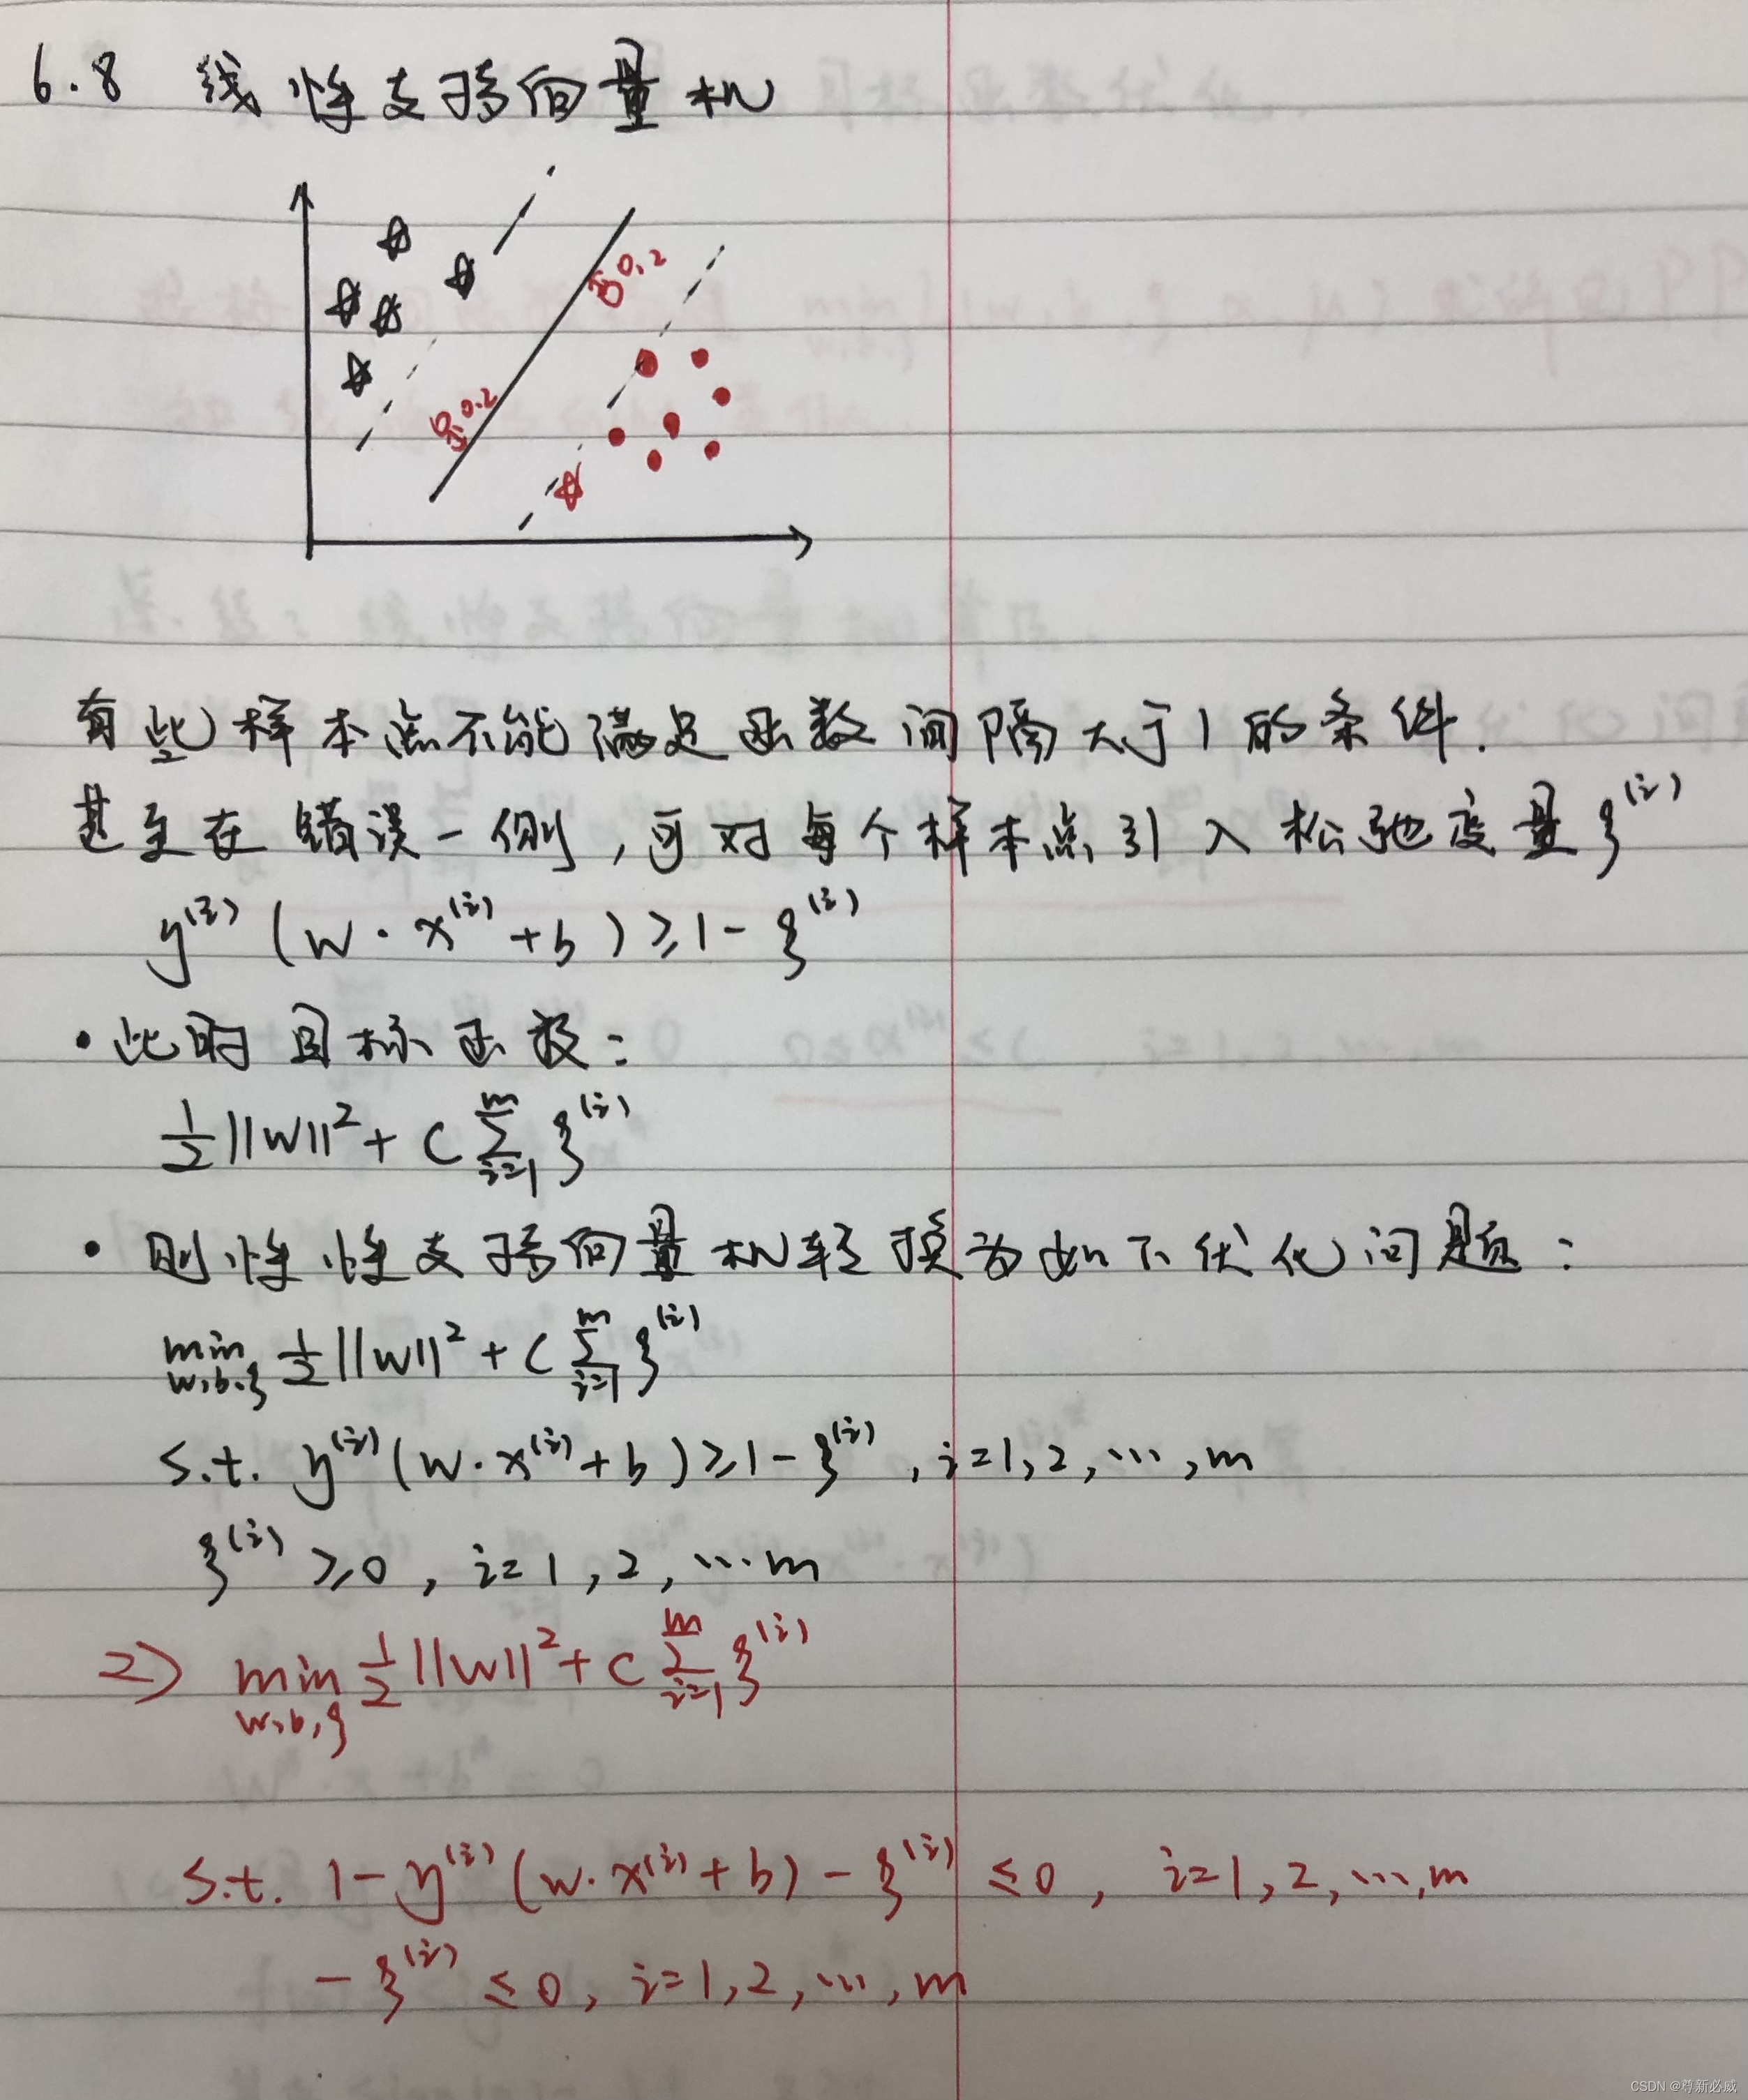 6.8 线性支持向量机
0.2
0.2
有些样本点不能满足函数间隔大于1的条件.
甚至在错误一侧,可对每个样本点引入松弛变量ξ⁽ⁱ⁾
y⁽ⁱ⁾(w·x⁽ⁱ⁾+b)≥1-ξ⁽ⁱ⁾
·此时目标函数:
1/2||w||²+C∑ᵢ₌₁ᵐξ⁽ⁱ⁾
·则性性支持向量机转换为如下优化问题:
min w,b,ξ 1/2||w||²+C∑ᵢ₌₁ᵐξ⁽ⁱ⁾
s.t. y⁽ⁱ⁾(w·x⁽ⁱ⁾+b)≥1-ξ⁽ⁱ⁾,i=1,2,…,m
ξ⁽ⁱ⁾≥0,i=1,2,…m
⇒ min w,b,ξ 1/2||w||²+C∑ᵢ₌₁ᵐξ⁽ⁱ⁾
s.t. 1-y⁽ⁱ⁾(w·x⁽ⁱ⁾+b)-ξ⁽ⁱ⁾≤0, i=1,2,…,m
-ξ⁽ⁱ⁾≤0,i=1,2,…,m
CSDN @尊新必威